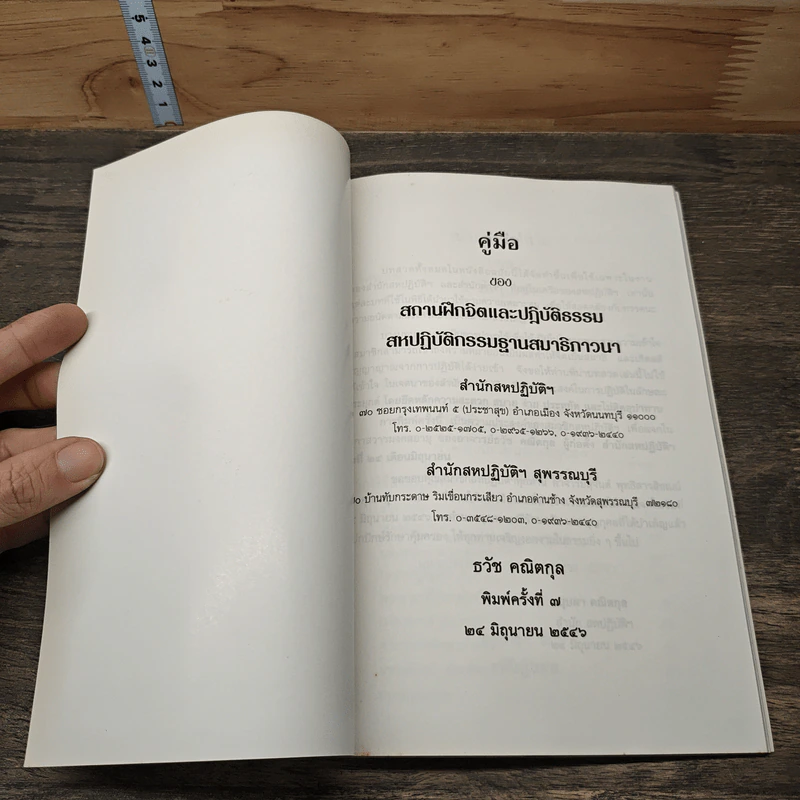 5 4 3 2 1
คู่มือ
ของ
สถานฝึกจิตและปฏิบัติธรรม
สหปฏิบัติกรรมฐานสมาธิภาวนา
สำนักสหปฏิบัติฯ
๗๐ ซอยกรุงเทพนนท์ ๕ (ประชาสุข) อำเภอเมือง จังหวัดนนทบุรี ๑๑๐๐๐
โทร. ๐-๒๕๒๕-๑๗๐๕, ๐-๒๙๖๕-๑๒๖๖, ๐-๑๙๓๖-๒๔๔๐
สำนักสหปฏิบัติฯ สุพรรณบุรี
บ้านทับกระดาษ ริมเขื่อนกระเสียว อำเภอด่านช้าง จังหวัดสุพรรณบุรี ๗๒๑๘๐
โทร. ๐-๓๕๔๘-๑๒๐๓, ๐-๑๙๓๖-๒๔๔๐
ธวัช คณิตกุล
พิมพ์ครั้งที่ ๗
๒๔ มิถุนายน ๒๕๔๖